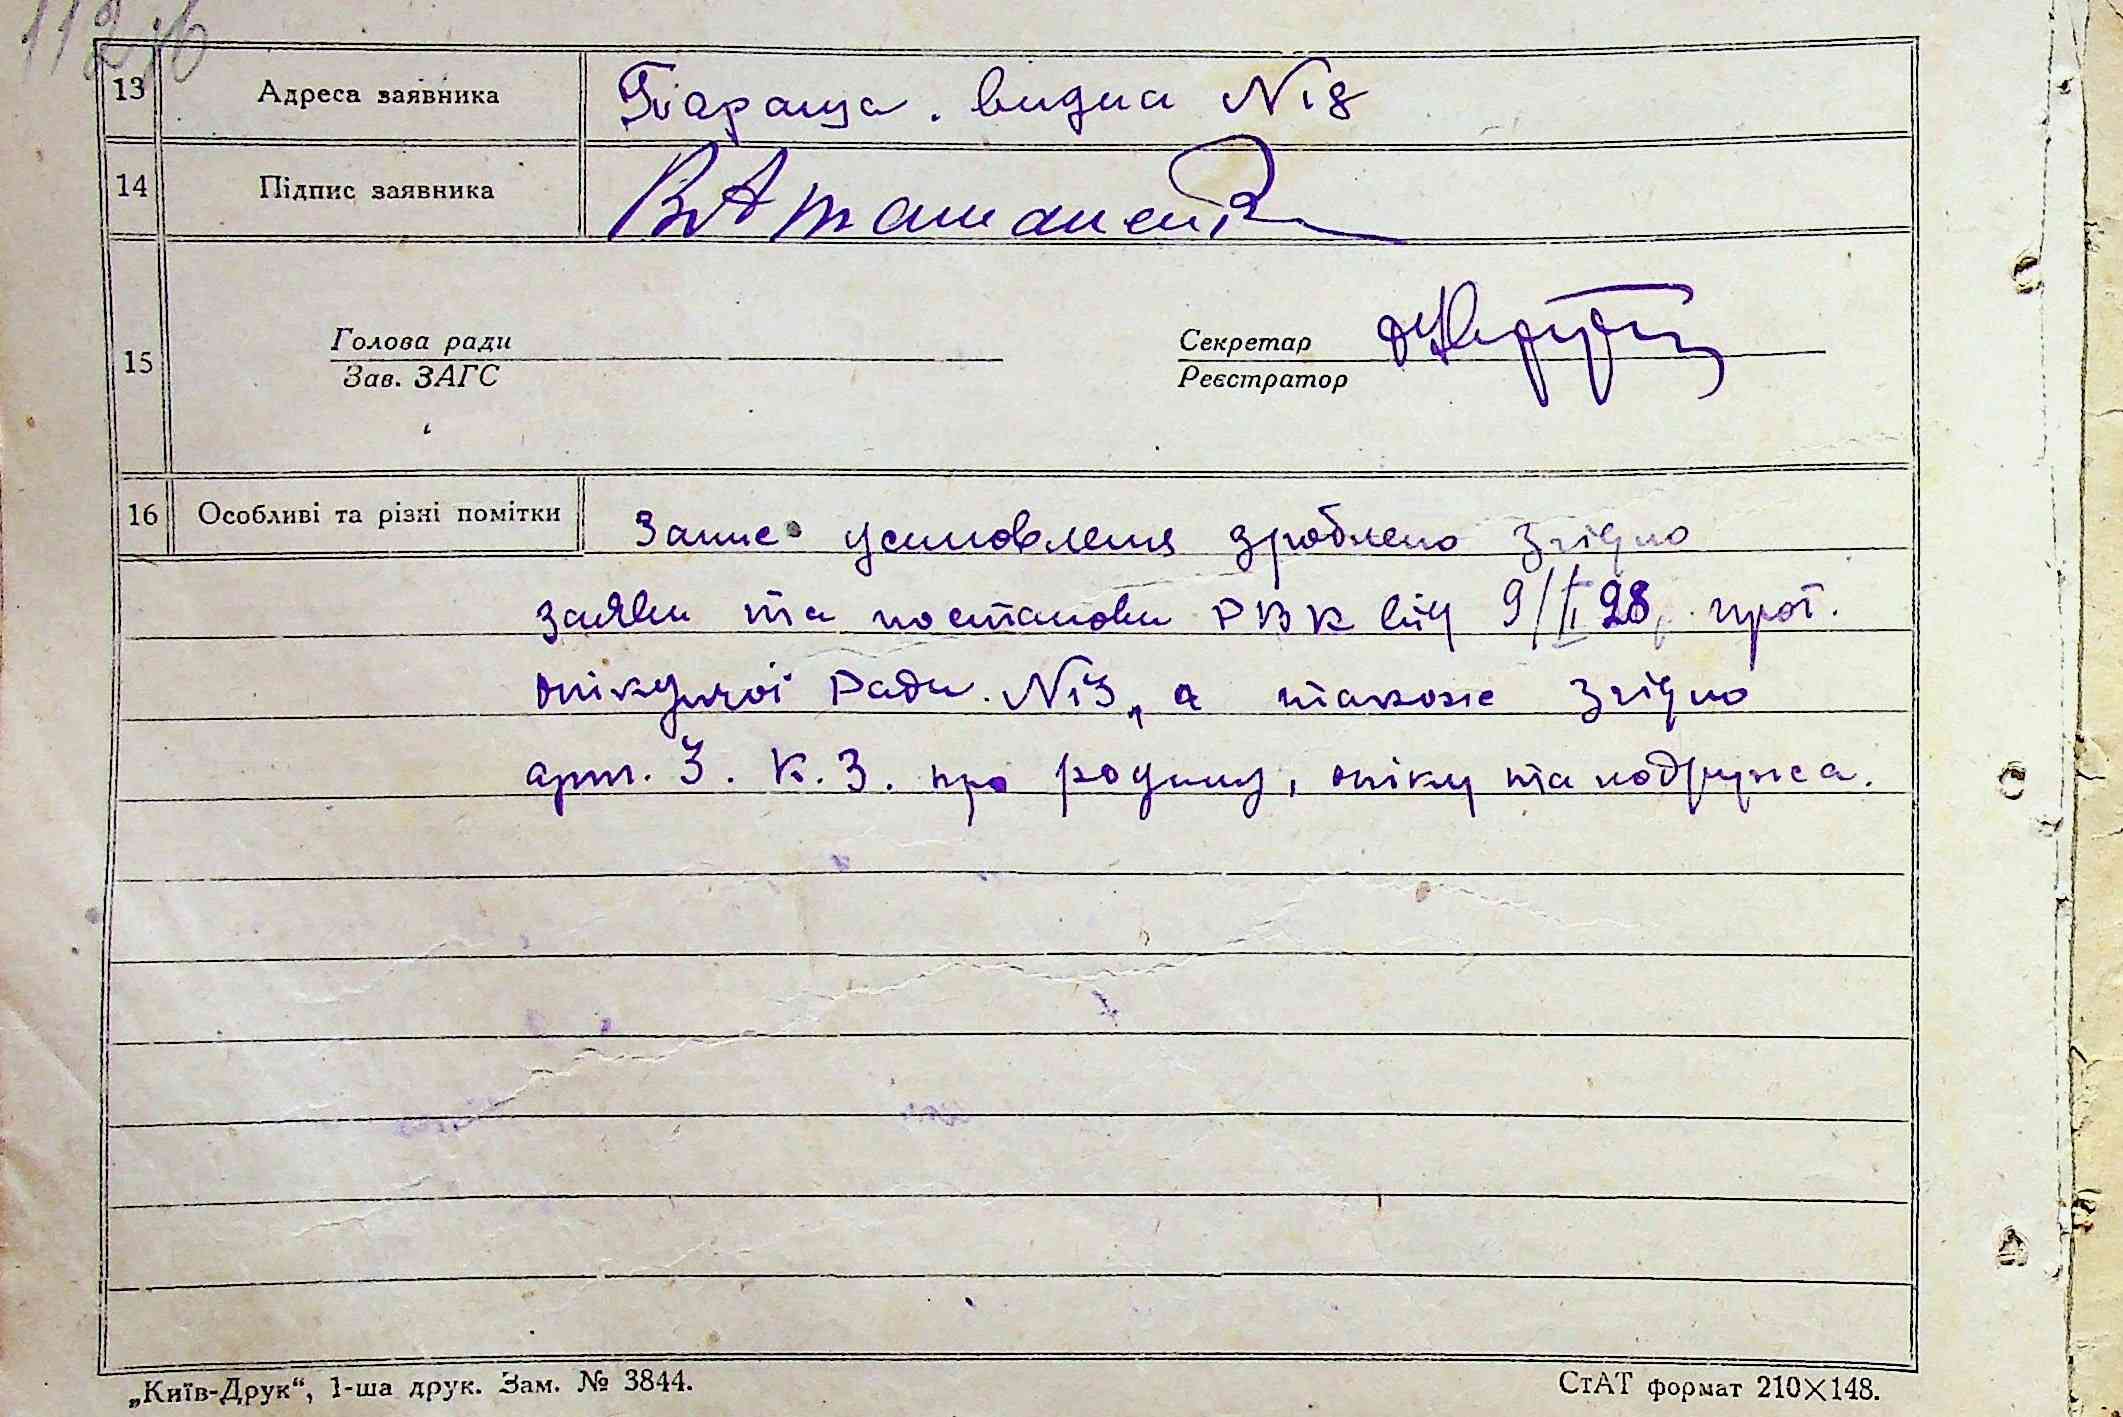 112зв
13 Адреса заявника Тараща. видна №18
14 Підпис заявника В Атаманенко
15 Голова ради Секретар
Зав. ЗАГС Реєстратор
16 Особливі та різні помітки Запис усиновленя зроблено згідно
заяви та постанови РВК від 9/II 28, прот.
опікунчої Ради №13, а також згідно
арт. 3. К. З. про родину, опіку та подружжа.
„Київ-Друк“, 1-ша друк. Зам. № 3844. СтАТ формат 210×148.